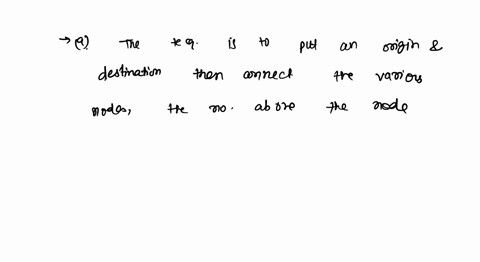 → (a) The req. is to put an origin &
destination then connect the various
nodes, the no. above the node